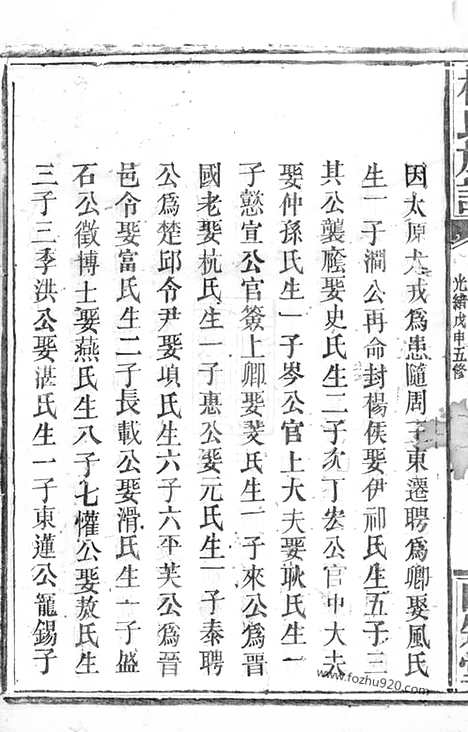 氏族譜
光緒戊申五修
因太原犬戎為患隨周平東遷聘為卿娶風氏
生一子澗公再命封楊侯娶伊祁氏生五子三
其公襲廕娶史氏生二子允丁宏公官中大夫
娶仲孫氏生一子岑公官上大夫娶耿氏生一
子懲宣公官簽上卿娶荽氏生一子來公為晉
國老娶杭氏生一子惠公娶元氏生一子泰聘
公為楚邱令尹娶項氏生六子六平芙公為晉
邑令娶富氏生二子長載公娶滑氏生一子盛
石公徵博士娶燕氏生八子七懽公娶敖氏生
三子三季洪公娶湛氏生一子東蓮公寵錫子
www.fozhu920.com